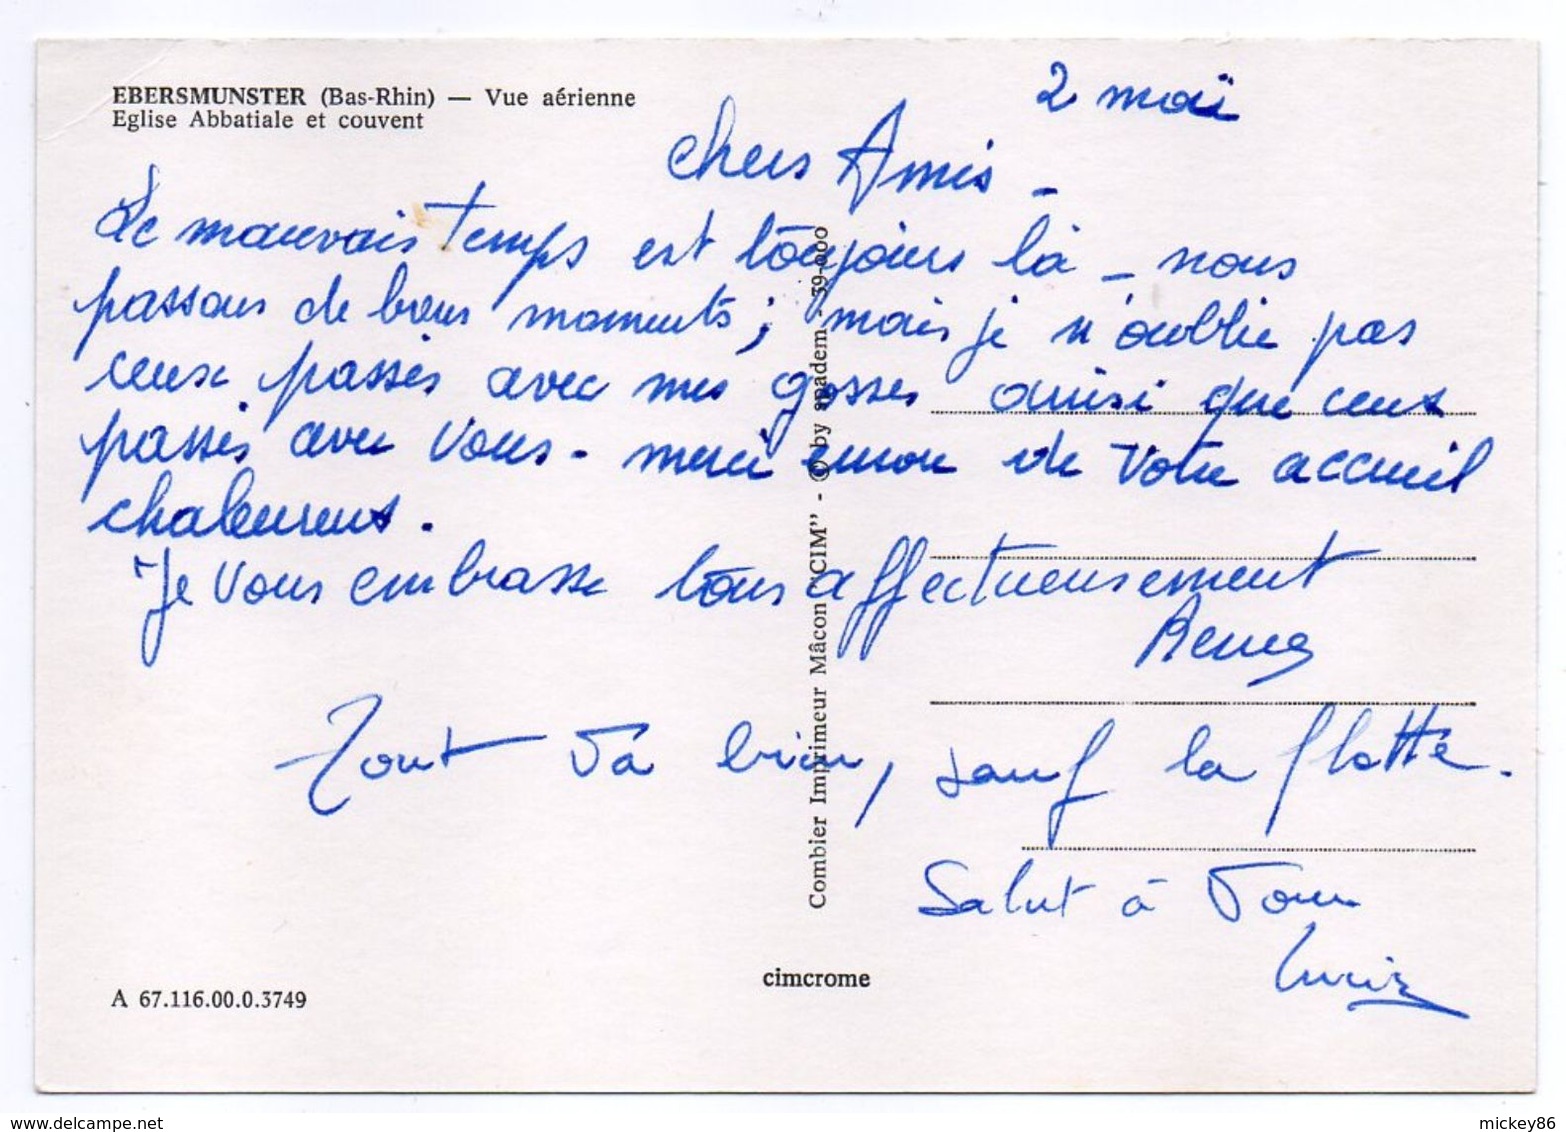 EBERSMUNSTER (Bas-Rhin) — Vue aérienne
Eglise Abbatiale et couvent
2 maï
chers Amis -
Le mauvais temps est toujours là - nous
passons de bons moments; mais je n'oublie pas
ceux passés avec mes gosses ainsi que ceux
passés avec vous - merci encore de votre accueil
chaleureux.
Je vous embrasse tous affectueusement
Tout va bien, sauf la flotte.
Salut à Tous
Combier Imprimeur Mâcon "CIM" - © by spadem - 39-000
cimcrome
A 67.116.00.0.3749
www.delcampe.net
mickey86